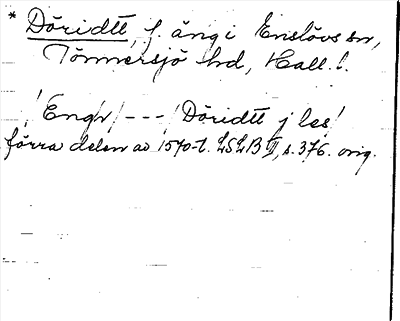 * Döridtt, f. äng i Enslövs sn,
Tönnersjö hd, Hall. l.
/Engh/ --- /Döridtt j les/
förra delen av 1570-t. LSLB VI, s. 376. orig.